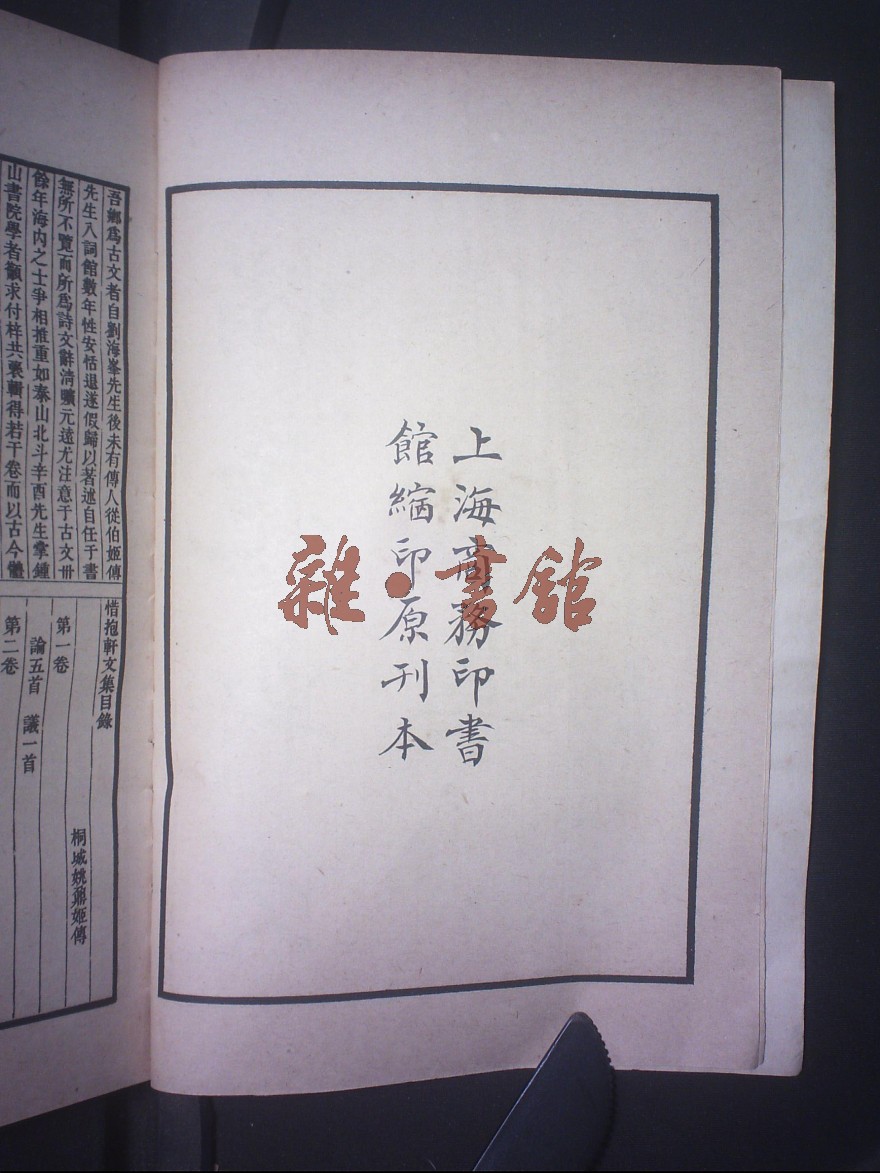 上海商務印書
館縮印原刊本
雜·書館
吾鄉爲古文者自劉海峯先生後未有傳人從伯姬傳
先生入詞館數年性安恬退遂假歸以著述自任于書
無所不覽而所爲詩文辭清曠元遠尤注意于古文卅
餘年海内之士爭相推重如泰山北斗辛酉先生掌鍾
山書院學者籲求付梓共裒輯得若干卷而以古今體
惜抱軒文集目錄
桐城姚鼐姬傳
第一卷
論五首 議一首
第二卷